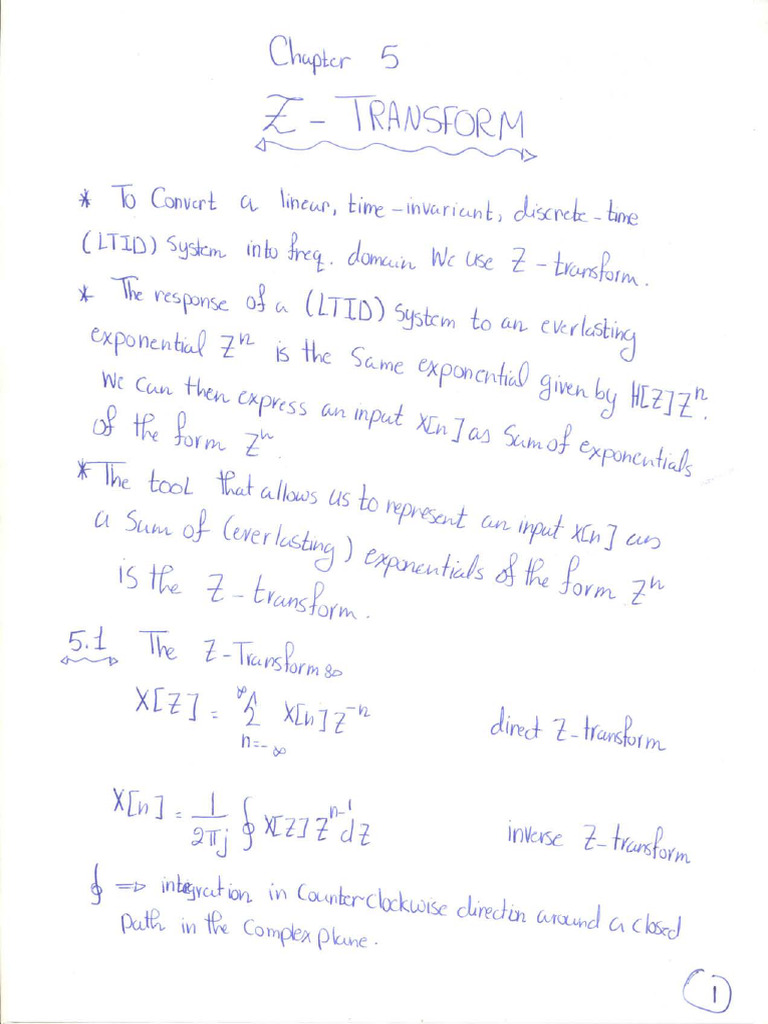 Chapter 5
Z - TRANSFORM
* To Convert a linear, time-invariant, discrete-time
(LTID) System into freq. domain We use Z-transform.
* The response of a (LTID) System to an everlasting
exponential Zⁿ is the Same exponential given by H[Z]Zⁿ.
We can then express an input X[n] as Sum of exponentials
of the form Zⁿ.
* The tool that allows us to represent an input X[n] as
a Sum of (everlasting) exponentials of the form Zⁿ
is the Z-transform.
5.1 The Z-Transform:
X[Z] = ∑_{n=-∞}^{∞} X[n] Z⁻ⁿ direct Z-transform
X[n] = 1/(2πj) ∮ X[Z] Zⁿ⁻¹ dZ inverse Z-transform
∮ ⇒ integration in Counterclockwise directin around a closed
path in the Complex plane.
1